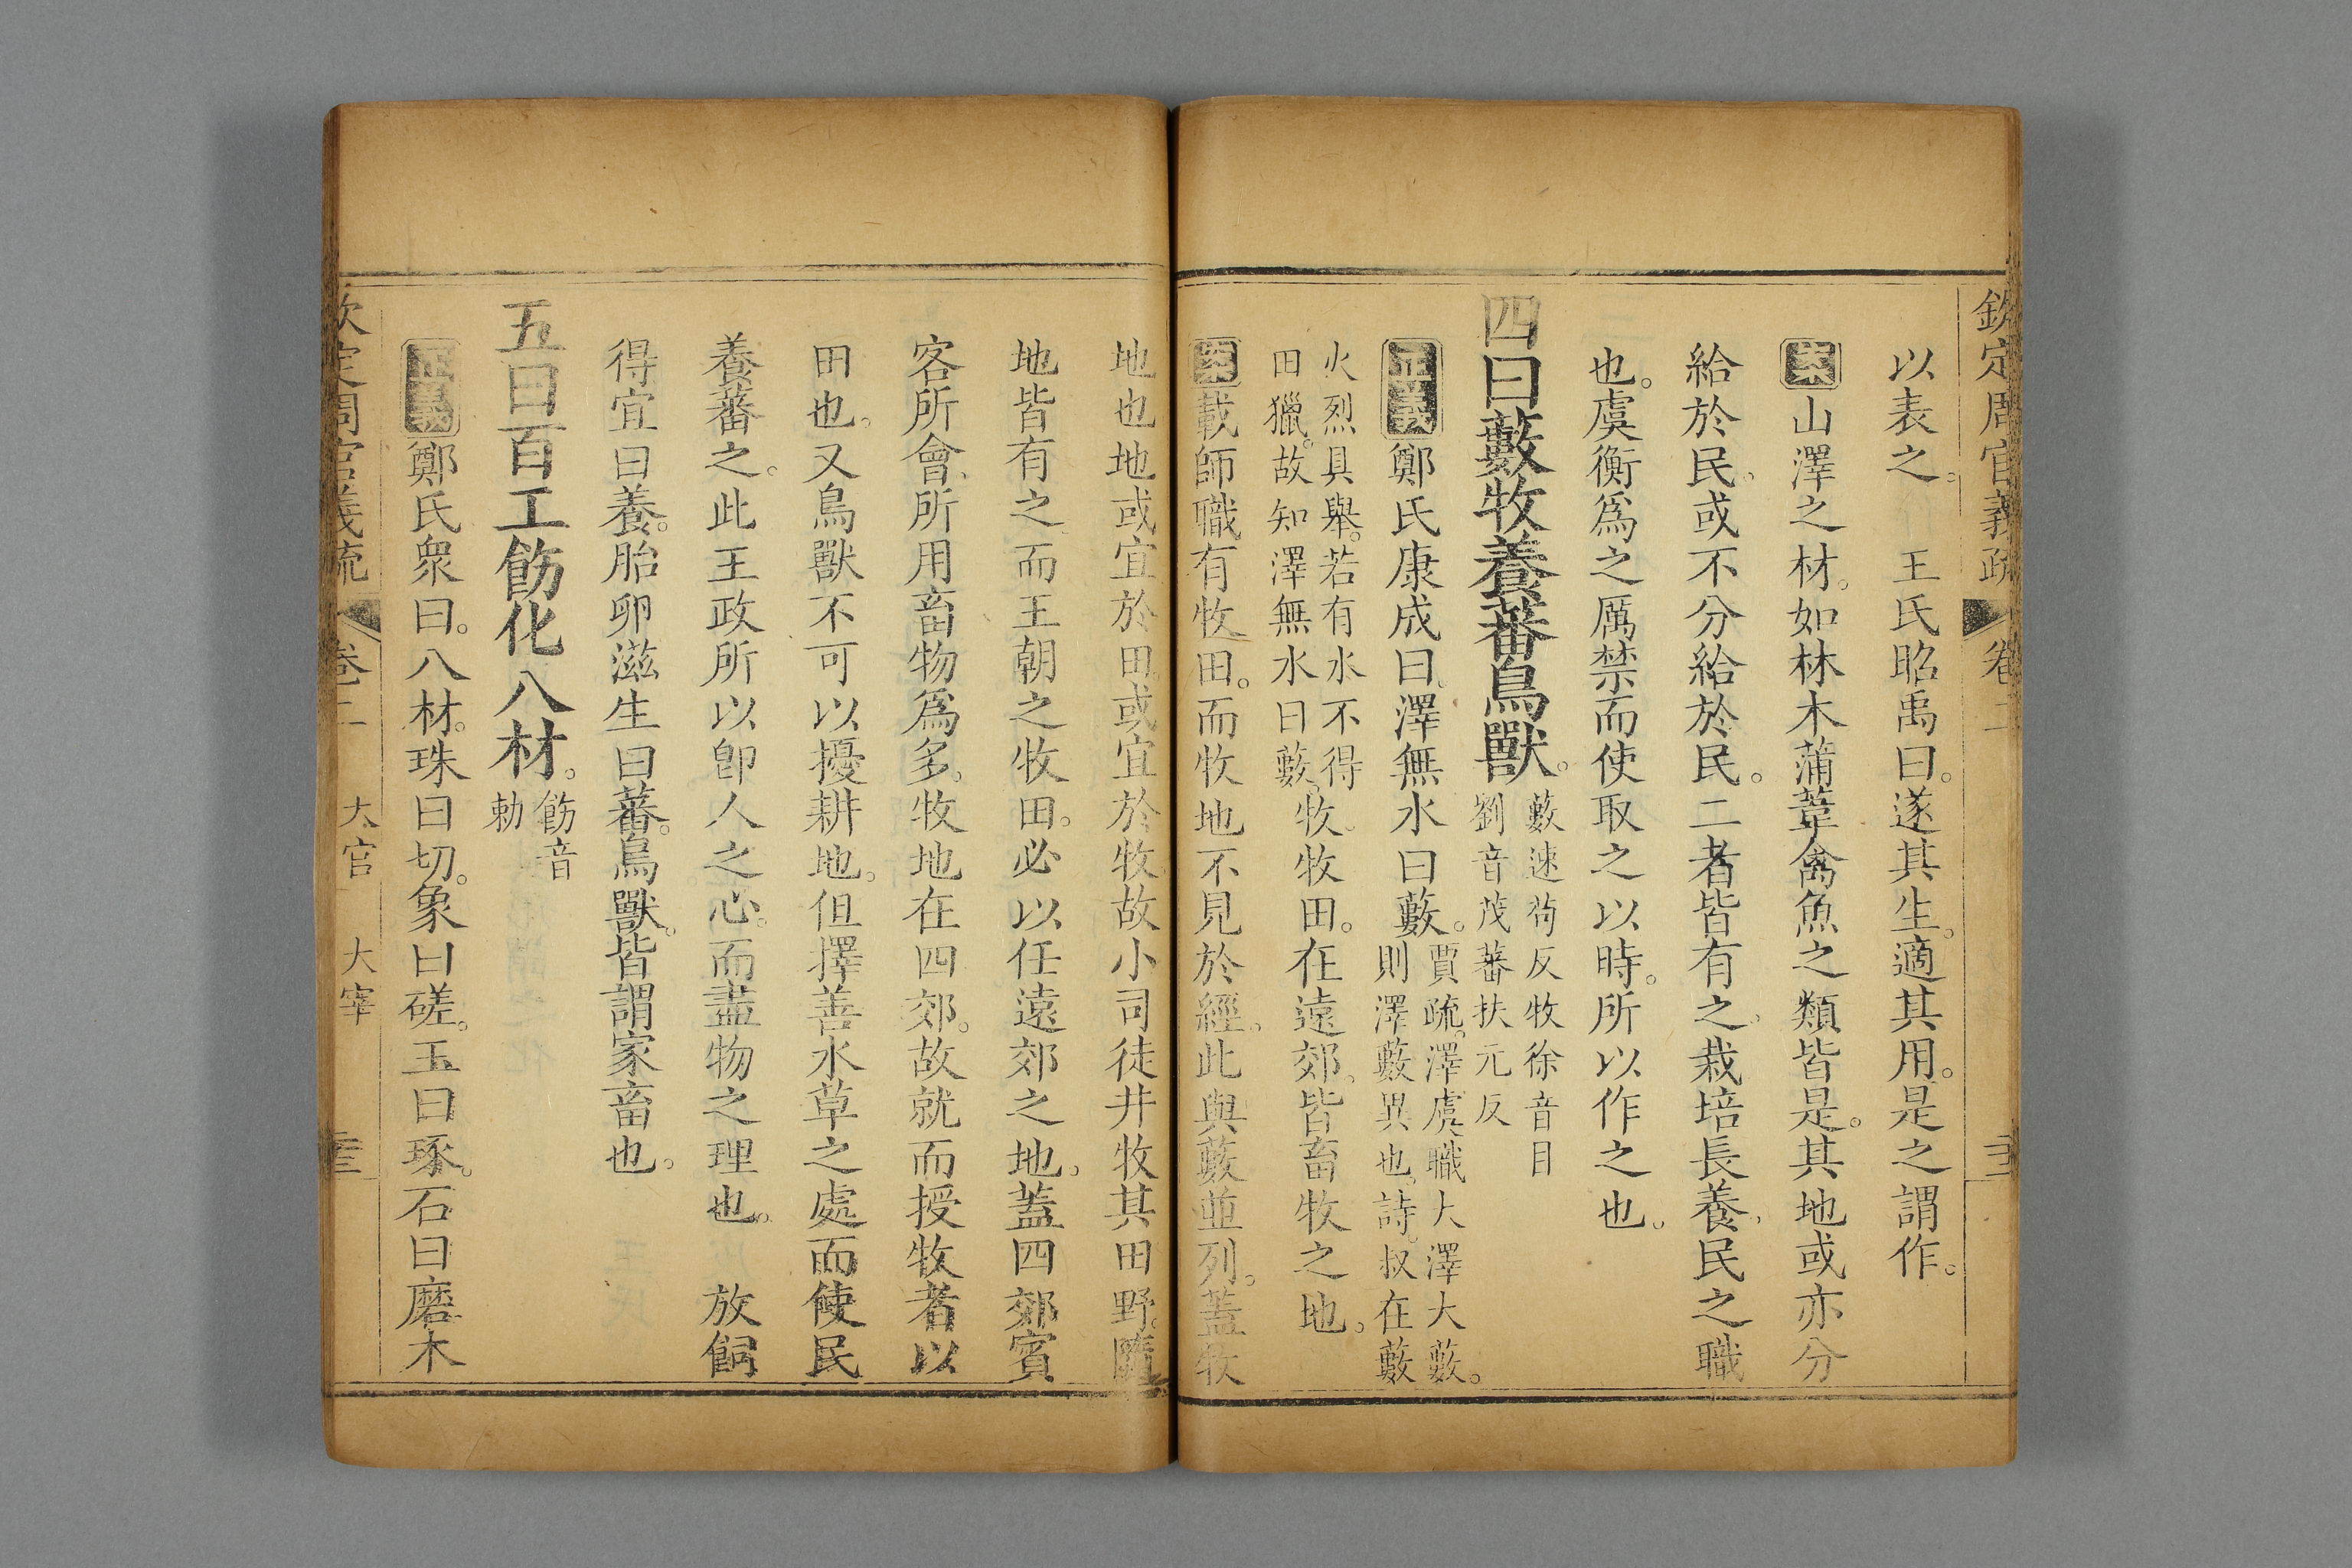 欽定周官義疏 卷二
以表之。 王氏昭禹曰。遂其生。適其用。是之謂作。
案山澤之材。如林木蒲葦禽魚之類皆是。其地或亦分
給於民。或不分給於民。二者皆有之。栽培長養。民之職
也。虞衡爲之厲禁而使取之以時。所以作之也。
四曰藪牧養蕃鳥獸。藪速苟反牧徐音目
劉音茂蕃扶元反
正義鄭氏康成曰。澤無水曰藪。賈疏。澤虞職大澤大藪。
則澤藪異也。詩。叔在藪
火烈具舉。若有水不得
田獵。故知澤無水曰藪。牧。牧田。在遠郊。皆畜牧之地。
案載師職有牧田。而牧地不見於經。此與藪並列。蓋牧
地也地或宜於田。或宜於牧。故小司徒井牧其田野。隨
地皆有之。而王朝之牧田。必以任遠郊之地。蓋四郊賓
客所會。所用畜物爲多。牧地在四郊。故就而授牧者以
田也。又鳥獸不可以擾耕地。但擇善水草之處而使民
養蕃之。此王政所以卽人之心。而盡物之理也。 放飼
得宜曰養。胎卵滋生曰蕃。鳥獸。皆謂家畜也。
五曰百工飭化八材。飭音
勅
正義鄭氏衆曰。八材。珠曰切。象曰磋。玉曰琢。石曰磨。木
欽定周官義疏 卷二 大官 大宰